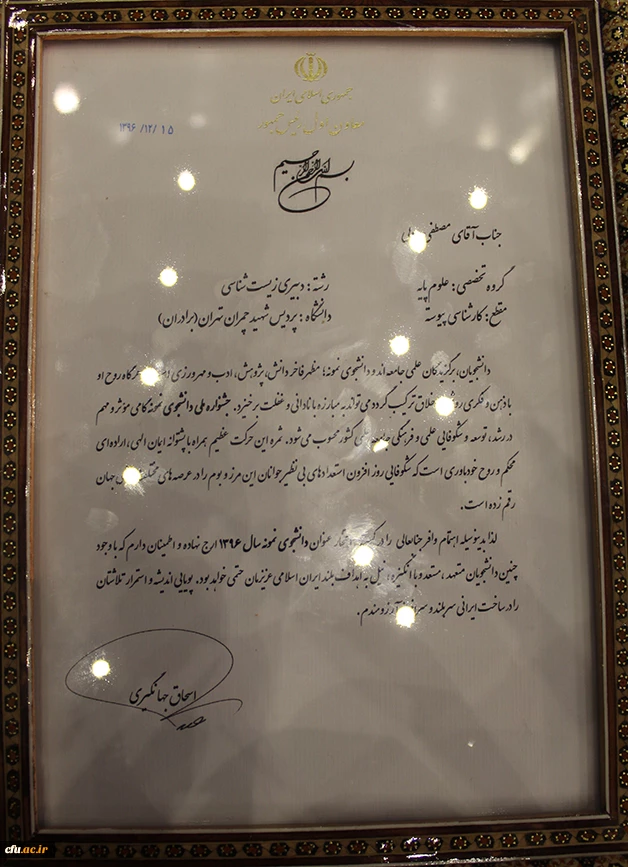 جمهوری اسلامی ایران
معاون اول رئیس جمهور
۱۳۹۶/۱۲/۱۵
بسم الله الرحمن الرحیم
جناب آقای مصطفی
گروه تخصصی: علوم پایه
رشته: دبیری زیست شناسی
مقطع: کارشناسی پیوسته
دانشگاه: پردیس شهید چمران تهران (برادران)
دانشجویان، برگزیدگان علمی جامعه اند و دانشجوی نمونه؛ مظهر فاخر دانش، پژوهش، ادب و مهرورزی روح او
با ذهن و فکری ترکیب گردد می تواند به مبارزه با نادانی و غفلت برخیزد. جشنواره ملی دانشجوی نمونه گامی مؤثر و مهم
در رشد، توسعه و شکوفایی علمی و فرهنگی کشور محسوب می شود. ثمره این حرکت عظیم همراه با پشتوانه ایمان الهی، اراده ای
محکم و روح خودباوری است که شکوفایی روز افزون استعدادهای بی نظیر جوانان این مرز و بوم را در عرصه های جهان
رقم زده است.
لذا بدینوسیله اهتمام وافر جنابعالی را در عنوان دانشجوی نمونه سال ۱۳۹۶ ارج نهاده و اطمینان دارم که با وجود
چنین دانشجویان متعهد، مستعد و با انگیزه، نیل به اهداف بلند ایران اسلامی عزیزمان حتمی خواهد بود. پویایی اندیشه و استمرار تلاشتان
را در ساخت ایرانی سربلند و آرزومندم.
اسحاق جهانگیری
cfu.ac.ir